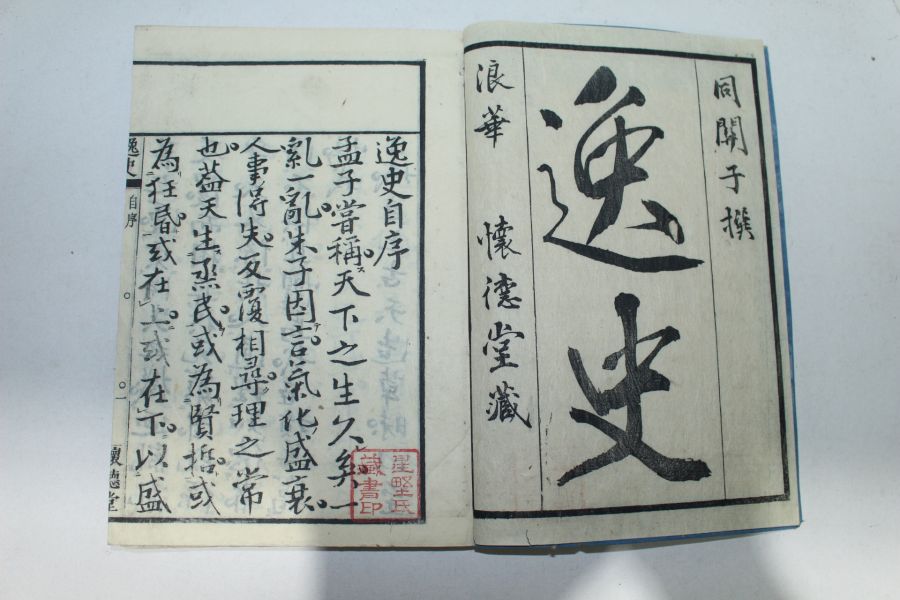 同關子撰
逸史
浪華 懷德堂藏
逸史自序
孟子嘗稱天下之生久矣一
亂一亂朱子因言氣化盛衰
人事得失反覆相尋理之常
也蓋天生烝民或為賢哲或
為狂昏或在上或在下以盛
逸史
自序
一
懷德堂
星野氏
藏書印